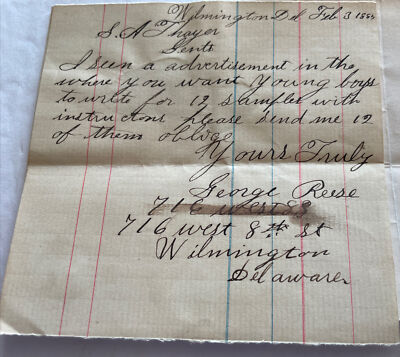 Wilmington Del Feb 3 1885
S. A Thayer
Gents
I seen a advertisement in the
where you want Young boys
to write for 12 samples with
instructons please send me 12
of them oblige
Yours Truly
George Reese
716 west 8
716 west 8th St
Wilmington
Delaware